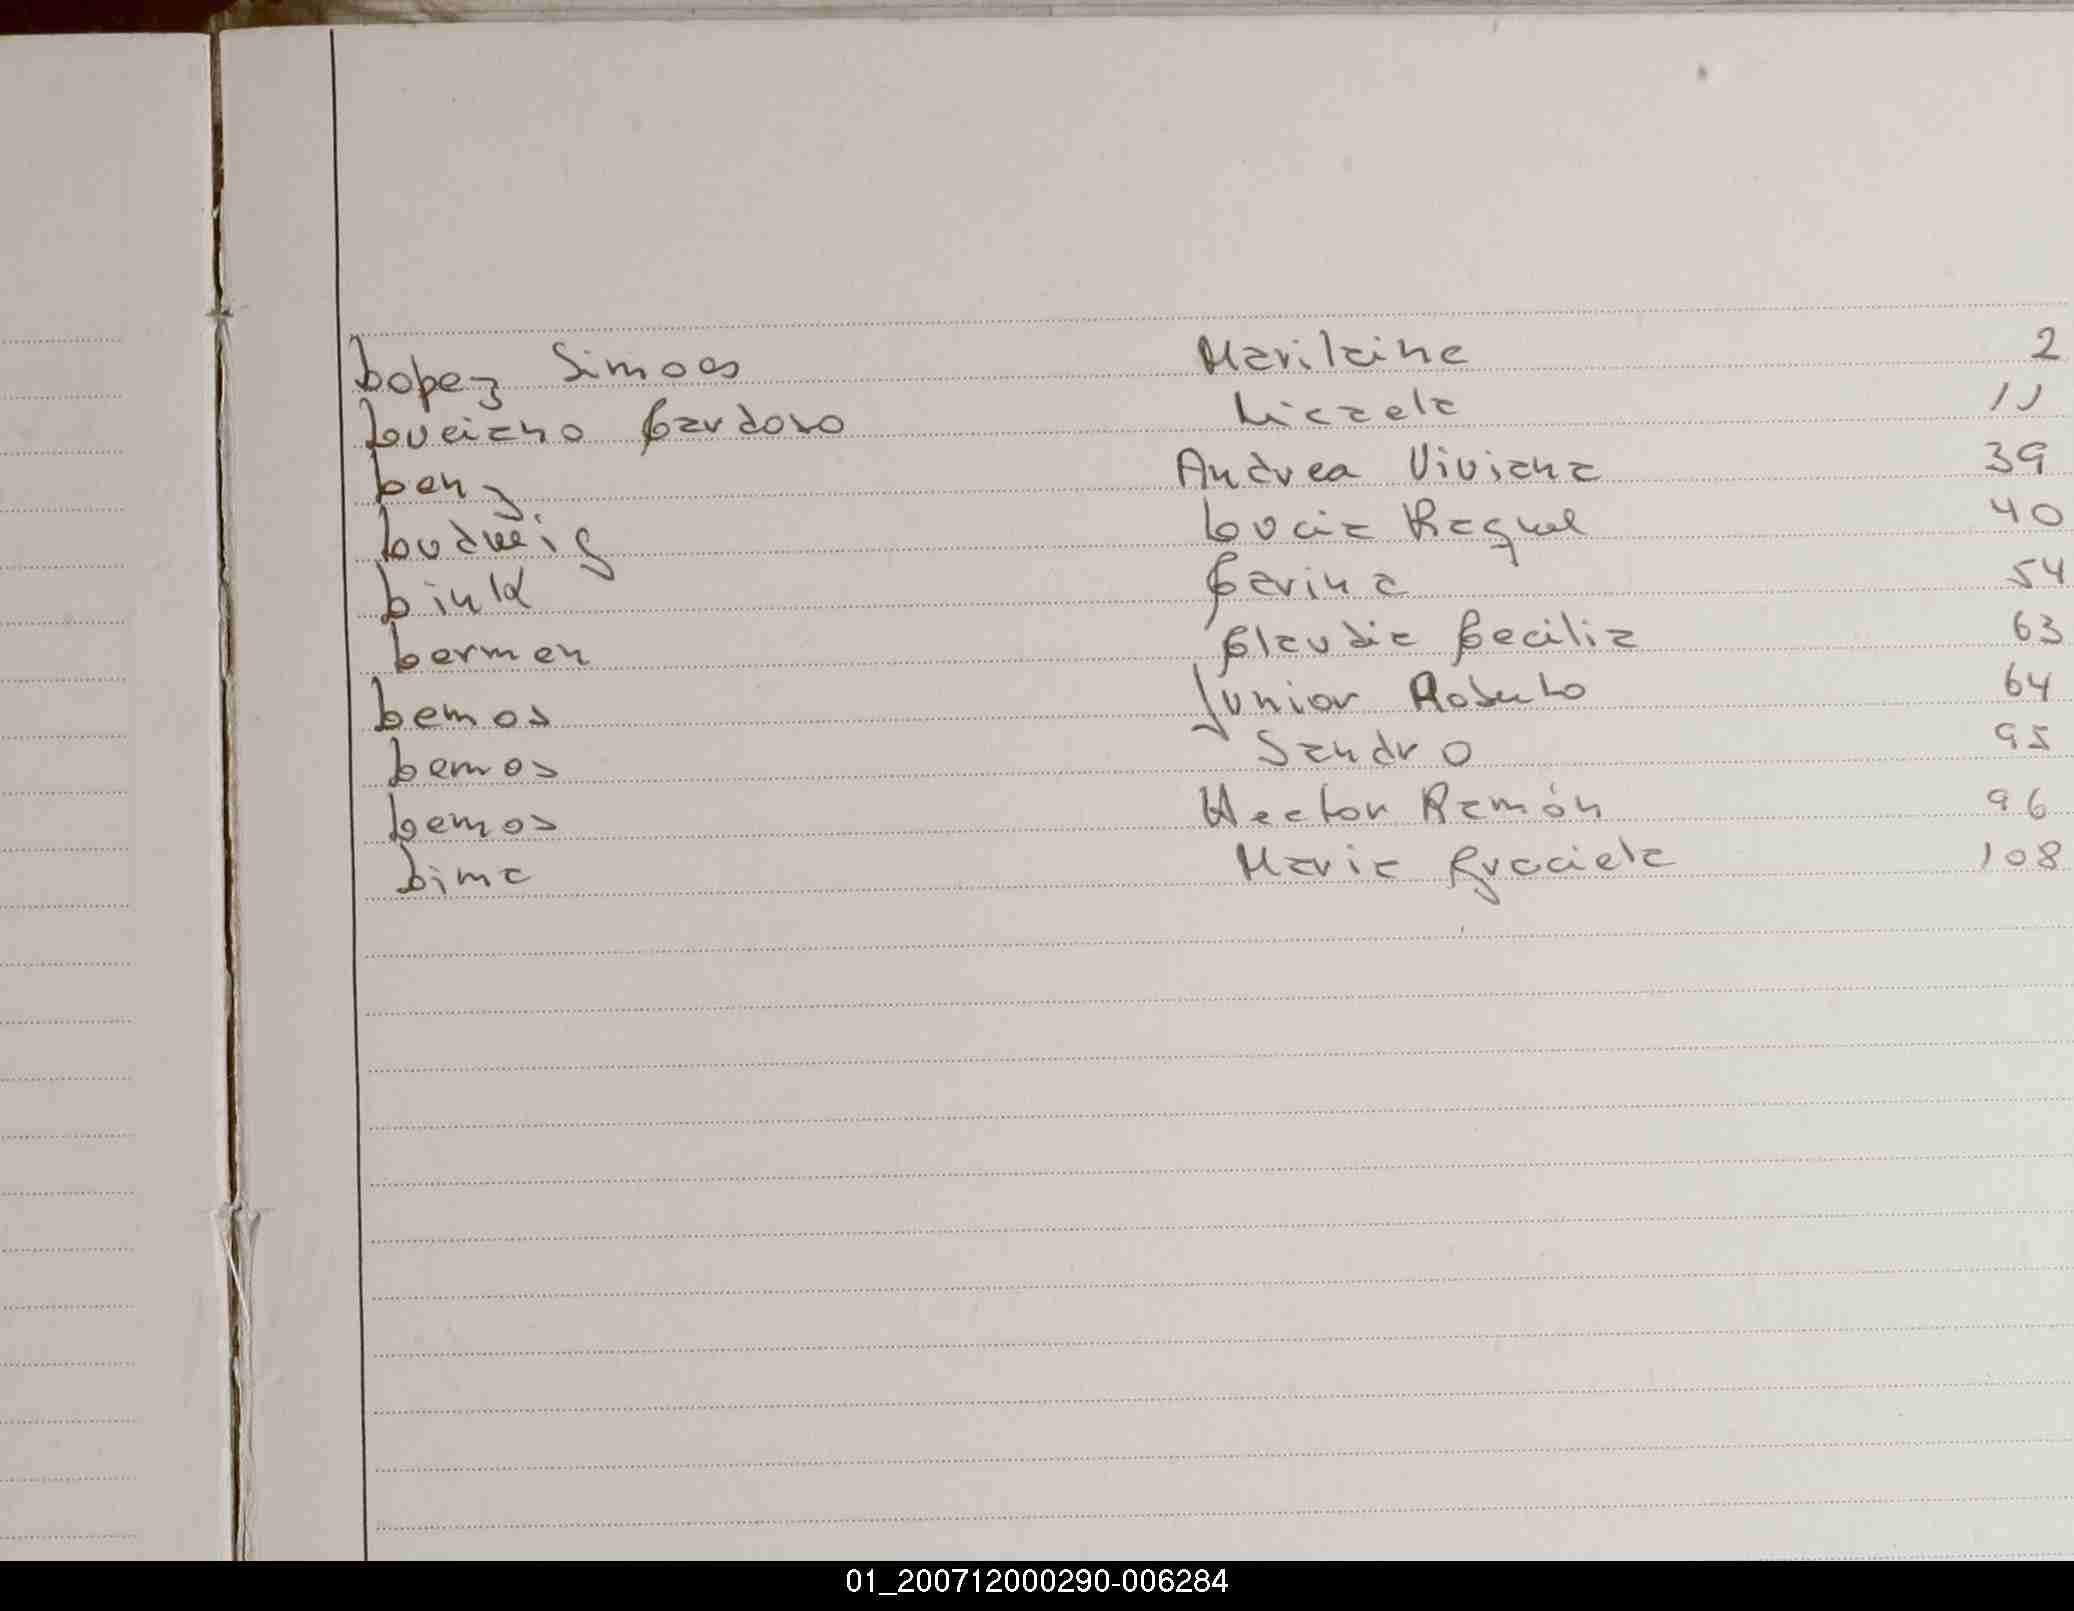 Lopez Simoes Marilaine 2
Luciano Cardoso Licaela 11
Lenz Andrea Viviana 39
Ludweig Lucia Raquel 40
Link Carina 54
Lermen Claudia Cecilia 63
Lemos Junior Roberto 64
Lemos Sandro 95
Lemos Hector Ramón 96
Lima Maria Graciela 108
01_200712000290-006284